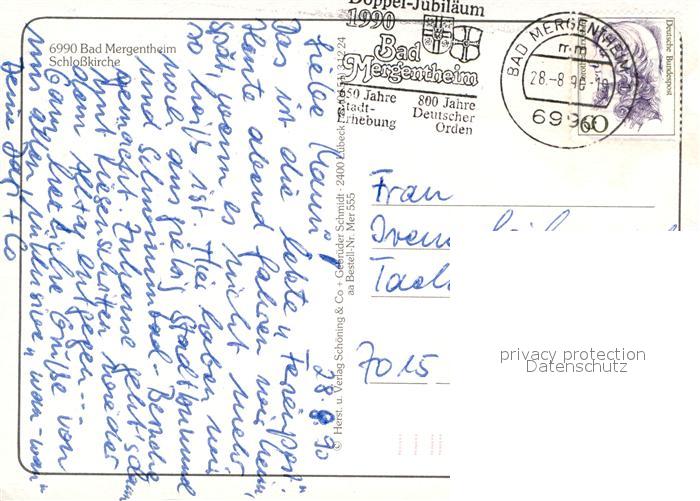 6990 Bad Mergentheim
Schloßkirche
Doppel-Jubiläum
1990
Bad
Mergentheim
650 Jahre
Stadt-
Erhebung
800 Jahre
Deutscher
Orden
BAD MERGENTHEIM
28.-8.90-19
6990
Deutsche Bundespost
60
© Herst. u. Verlag Schöning & Co + Gebrüder Schmidt · 2400 Lübeck
aa Bestell-Nr. Mer 555
28.8.90
Liebe
Das ist die letzte "Ferienpost"
Heute abend fahren wir heim,
spät, wenn es nicht mehr
so heiß ist. Hier haben wir
noch ausgiebig Stadtbummel
und Schwimmbad-Besuche
gemacht. Zuhause geht's dann
mit Riesenschritten wieder
dem Alltag entgegen...
Ganz herzliche Grüße von
uns allen, inklusive "wau-wau"
Deine + Co
Frau
7015
privacy protection
Datenschutz